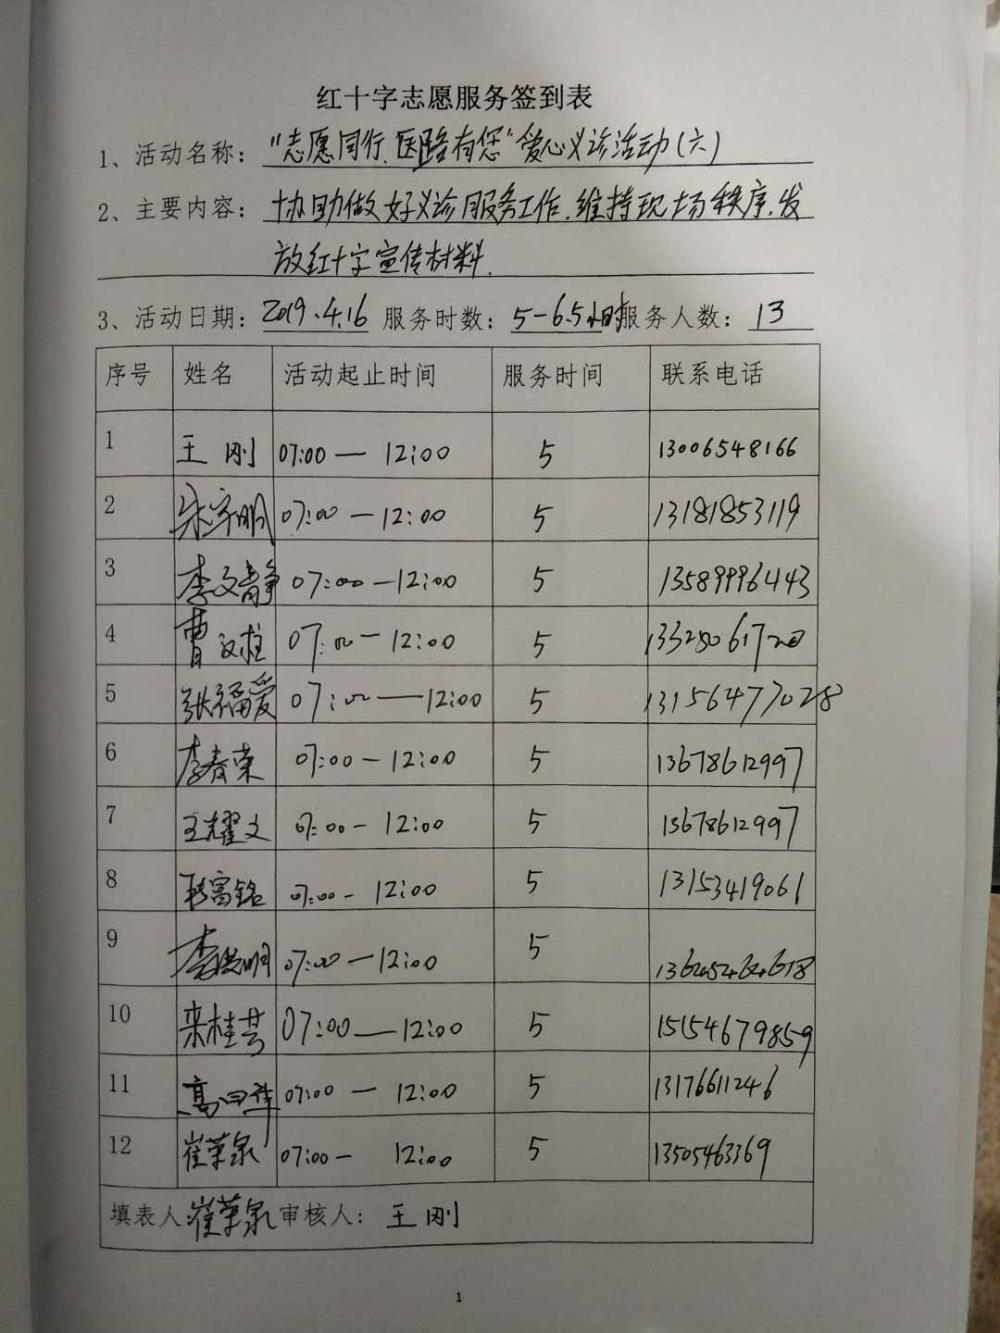 红十字志愿服务签到表
1、活动名称：“志愿同行.医路有您”爱心义诊活动(六)
2、主要内容：协助做好义诊服务工作.维持现场秩序.发
放红十字宣传材料.
3、活动日期：2019.4.16 服务时数：5-6.5小时 服务人数：13
序号 姓名 活动起止时间 服务时间 联系电话
1 王刚 07:00 — 12:00 5 13006548166
2 07:00 — 12:00 5 13181853119
3 李文静 07:00 — 12:00 5 13589996443
4 曹 07:00 — 12:00 5
5 张福爱 07:00 — 12:00 5 13156477028
6 李春荣 07:00 — 12:00 5 13678612997
7 王耀文 07:00 - 12:00 5 13678612997
8 07:00 - 12:00 5 13153419061
9 07:00 — 12:00 5
10 07:00 — 12:00 5 15154679859
11 07:00 — 12:00 5 13176611246
12 07:00 - 12:00 5 13505463369
填表人: 审核人：王刚
1